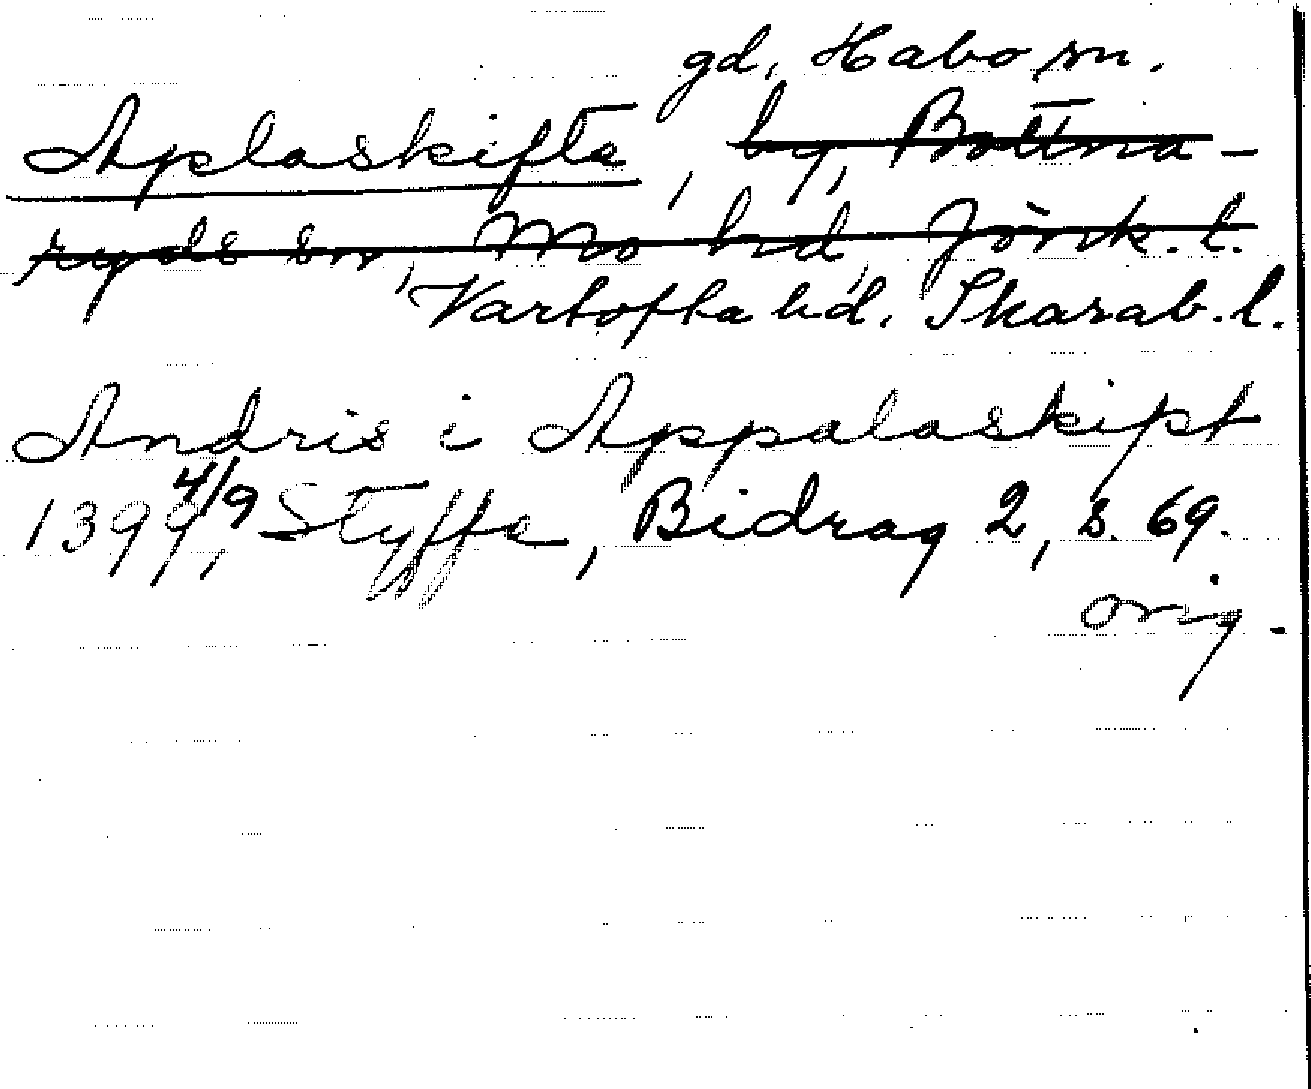 gd, Habo sn.
Aplaskifte, by, Bottna-
ryds sn, Mo hd, Jönk. l.
, Vartofta hd. Skarab. l.
Andris i Appalaskipt
1399 4/9, Styffe, Bidrag 2, s. 69.
orig.